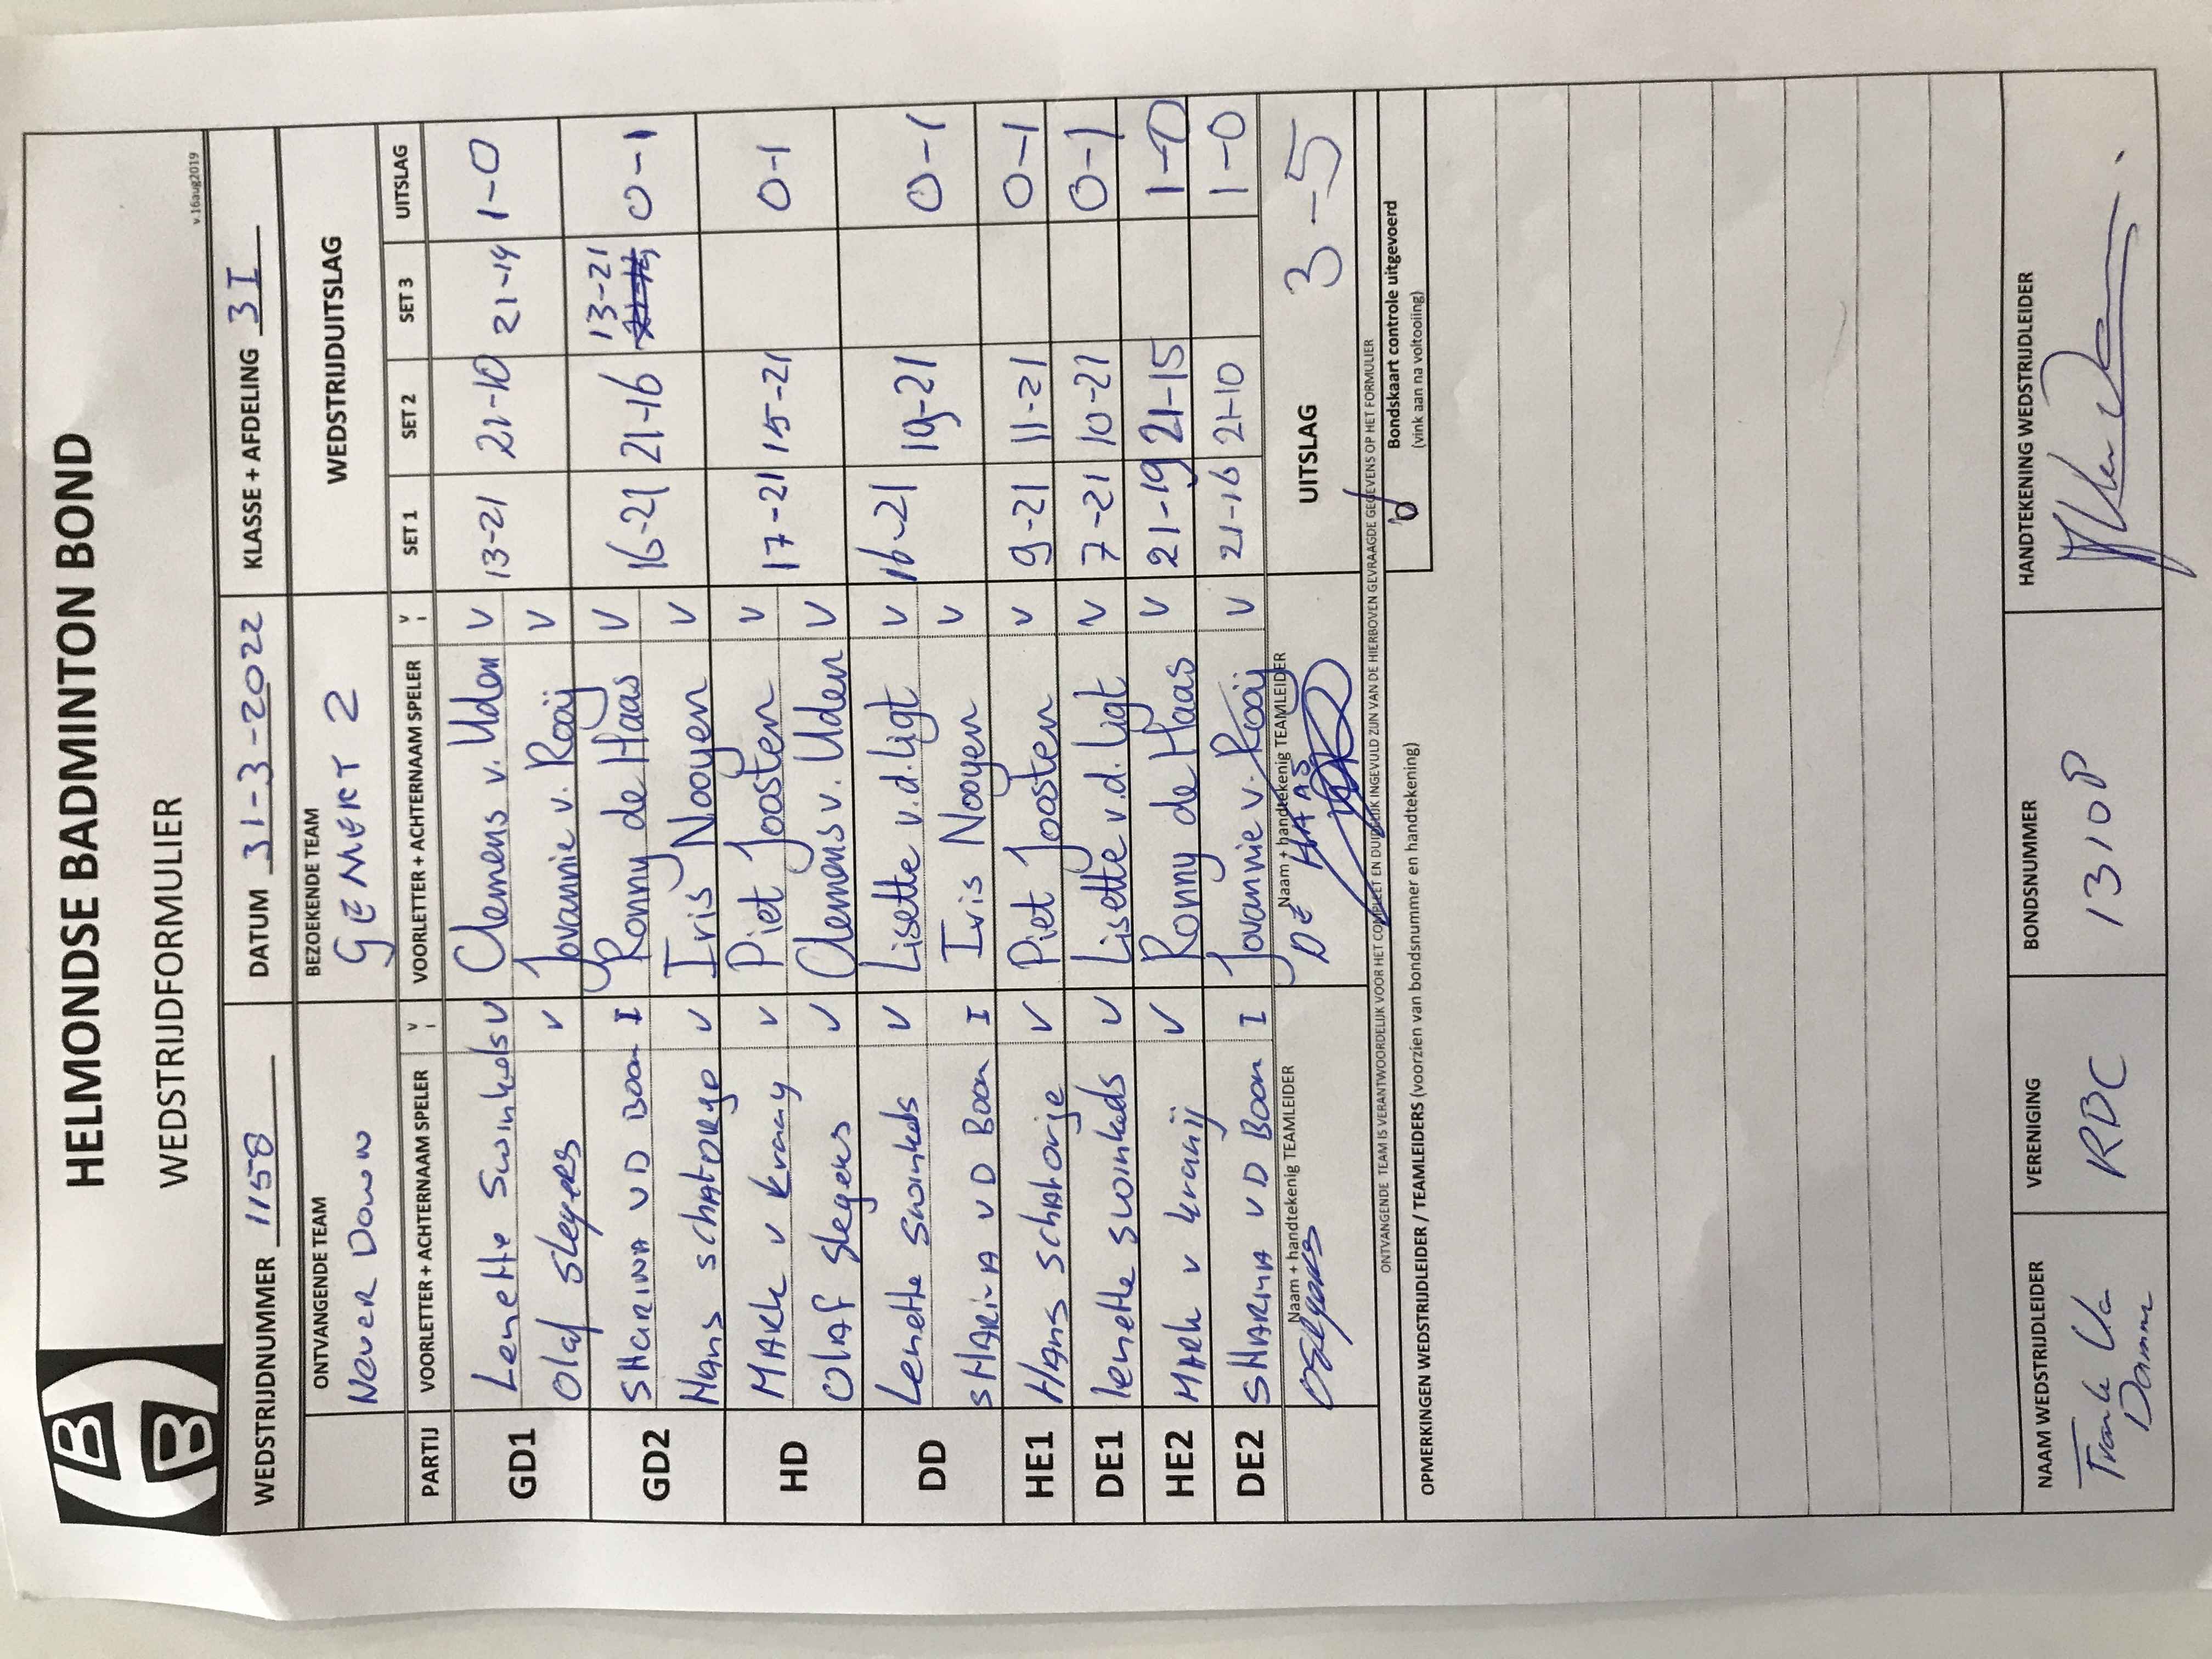 HELMONDSE BADMINTON BOND
WEDSTRIJDFORMULIER
v.16aug2019
WEDSTRIJDNUMMER 1158 DATUM 31-3-2022 KLASSE + AFDELING 3I
ONTVANGENDE TEAM BEZOEKENDE TEAM WEDSTRIJDUITSLAG
Never Down GEMERT 2
PARTIJ VOORLETTER + ACHTERNAAM SPELER V I VOORLETTER + ACHTERNAAM SPELER V I SET 1 SET 2 SET 3 UITSLAG
GD1 Lenette Swinkels V Clemens v. Uden V 13-21 21-10 21-14 1-0
Olaf Slegers V Jovannie v. Rooij V
GD2 SHarina VD Boon I Ronny de Haas V 16-21 21-16 13-21 0-1
Hans schatorje V Iris Nooyen V
HD MARk v kraay V Piet Joosten V 17-21 15-21 0-1
Olaf Slegers V Clemens v. Uden V
DD Lenette Swinkels V Lisette v.d. Ligt V 16-21 19-21 0-1
sHARinA VD Boon I Iris Nooyen V
HE1 Hans schatorje V Piet Joosten V 9-21 11-21 0-1
DE1 lenette swinkels V Lisette v.d. Ligt V 7-21 10-21 0-1
HE2 MARk v kraaij V Ronny de Haas V 21-19 21-15 1-0
DE2 SHARINA VD Boon I Jovannie v. Rooij V 21-16 21-10 1-0
Naam + handtekenig TEAMLEIDER Naam + handtekenig TEAMLEIDER UITSLAG 3-5
DE HAAS
ONTVANGENDE TEAM IS VERANTWOORDELIJK VOOR HET COMPLEET EN DUIDELIJK INGEVULD ZIJN VAN DE HIERBOVEN GEVRAAGDE GEGEVENS OP HET FORMULIER
Bondskaart controle uitgevoerd
(vink aan na voltooiing)
OPMERKINGEN WEDSTRIJDLEIDER / TEAMLEIDERS (voorzien van bondsnummer en handtekening)
NAAM WEDSTRIJDLEIDER VERENIGING BONDSNUMMER HANDTEKENING WEDSTRIJDLEIDER
Frank Va RBC 1310P
Damme